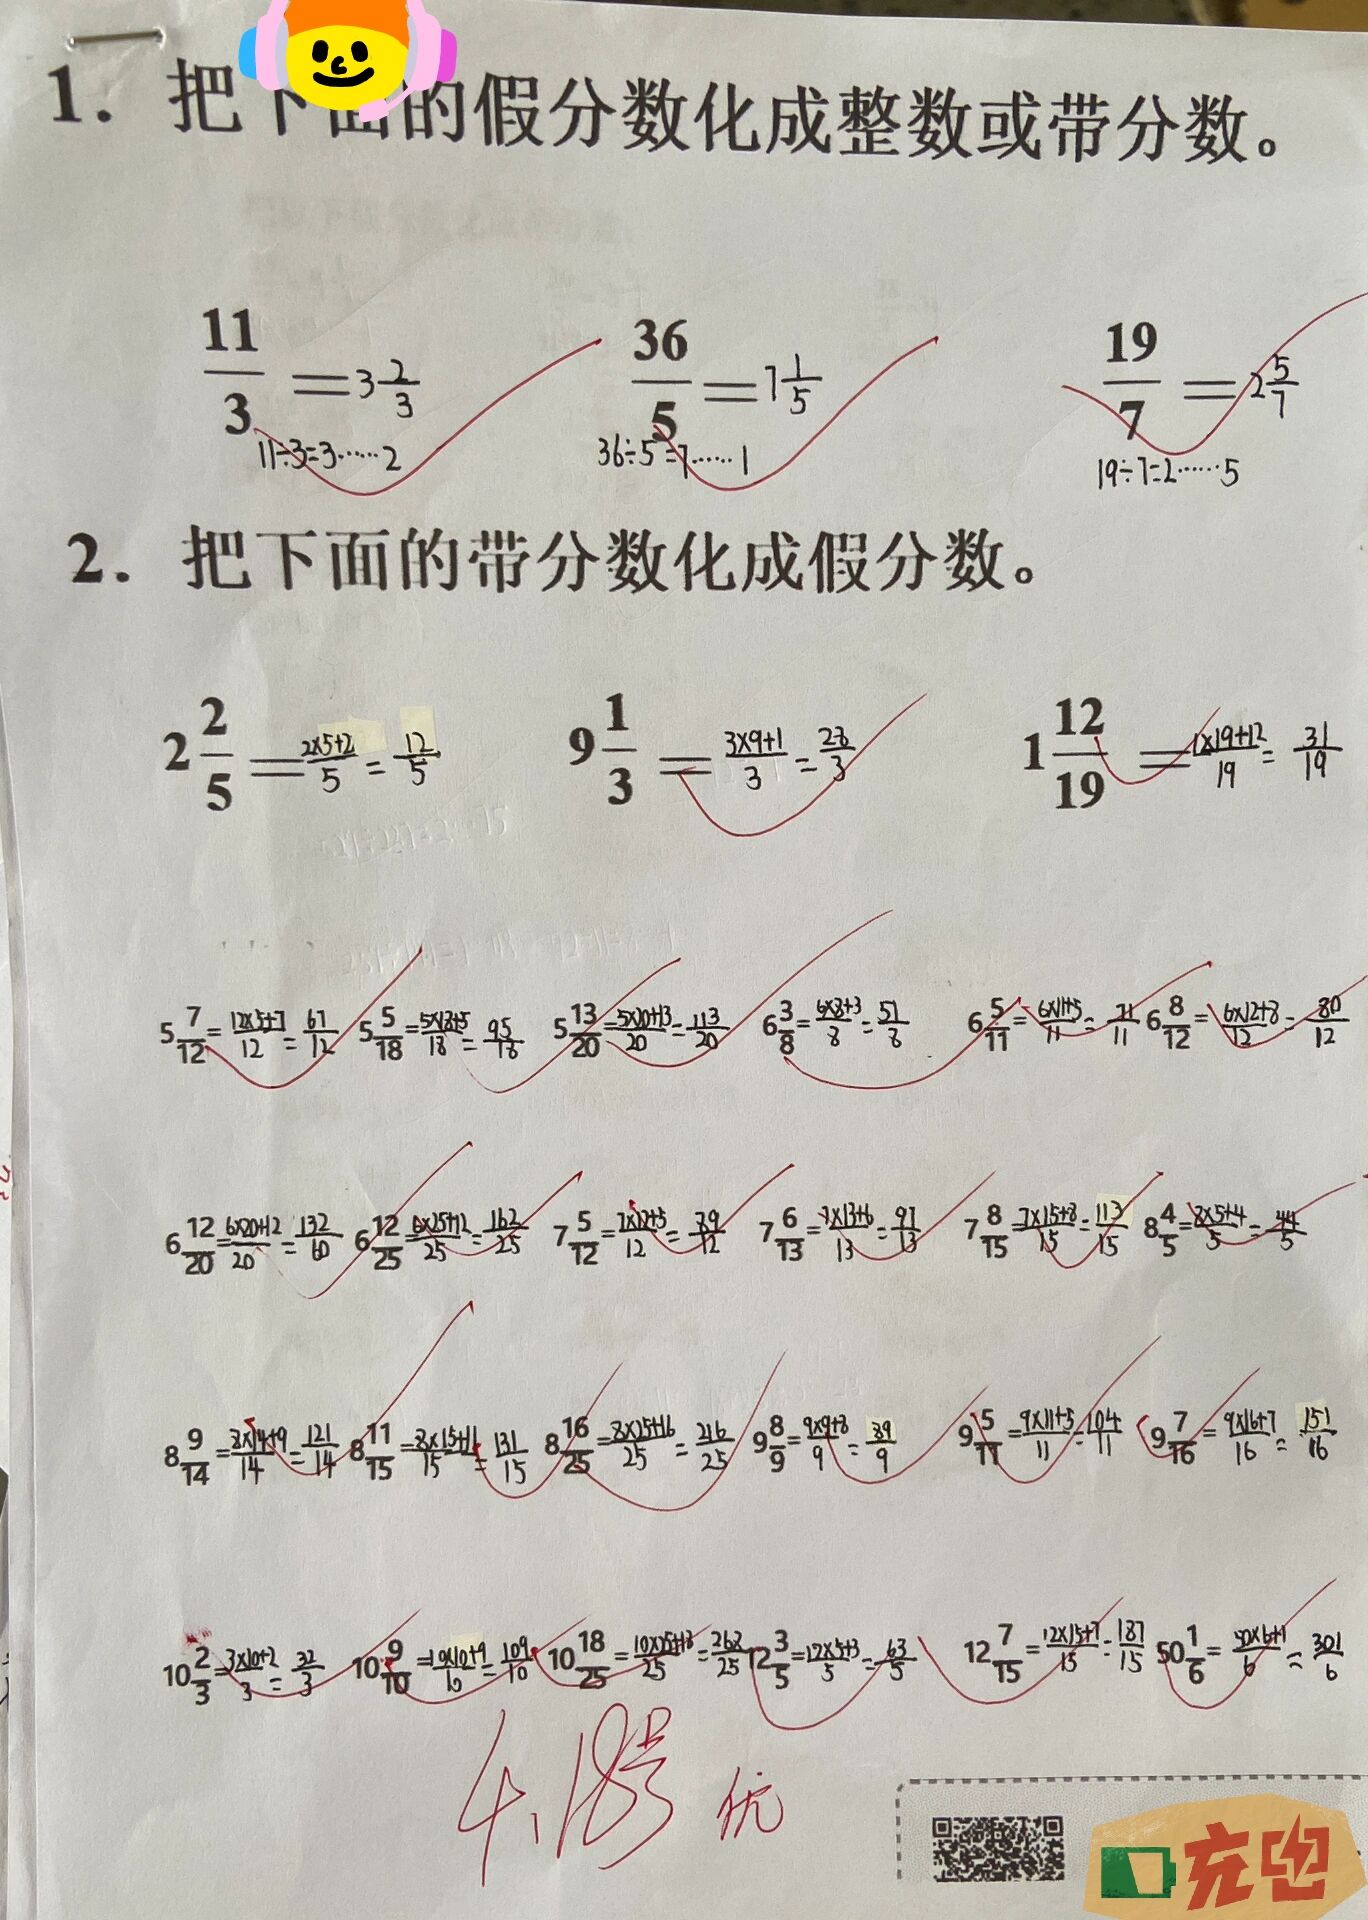 1. 把下面的假分数化成整数或带分数。
11/3 = 3 2/3 36/5 = 7 1/5 19/7 = 2 5/7
11÷3=3……2 36÷5=7……1 19÷7=2……5
2. 把下面的带分数化成假分数。
2 2/5 = 2×5+2/5 = 12/5 9 1/3 = 3×9+1/3 = 28/3 1 12/19 = 1×19+12/19 = 31/19
5 7/12 = 12×5+7/12 = 67/12 5 5/18 = 5×18+5/18 = 95/18 5 13/20 = 5×20+13/20 = 113/20 6 3/8 = 6×8+3/8 = 51/8 6 5/11 = 6×11+5/11 = 71/11 6 8/12 = 6×12+8/12 = 80/12
6 12/20 = 6×20+12/20 = 132/60 6 12/25 = 6×25+12/25 = 162/25 7 5/12 = 7×12+5/12 = 89/12 7 6/13 = 7×13+6/13 = 97/13 7 8/15 = 7×15+8/15 = 113/15 8 4/5 = 8×5+4/5 = 44/5
8 9/14 = 8×14+9/14 = 121/14 8 11/15 = 8×15+11/15 = 131/15 8 16/25 = 8×25+16/25 = 216/25 9 8/9 = 9×9+8/9 = 89/9 9 5/11 = 9×11+5/11 = 104/11 9 7/16 = 9×16+7/16 = 151/16
10 2/3 = 3×10+2/3 = 32/3 10 9/10 = 10×10+9/10 = 109/10 10 18/25 = 10×25+18/25 = 268/25 12 3/5 = 12×5+3/5 = 63/5 12 7/15 = 12×15+7/15 = 187/15 50 1/6 = 50×6+1/6 = 301/6
4.18号 优
充电